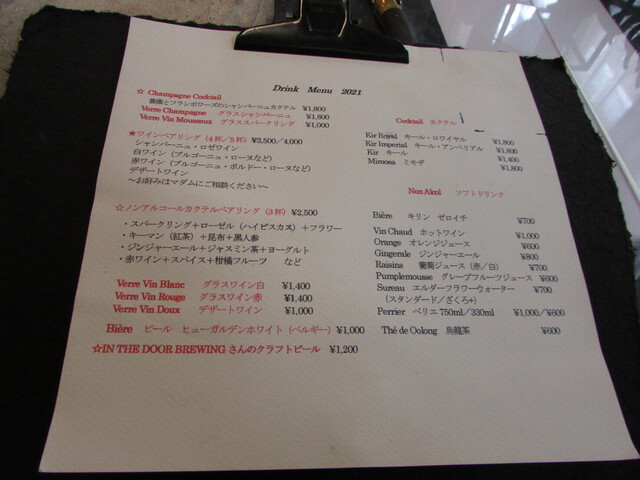 Drink Menu 2021
☆ Champagne Cocktail
薔薇とフランボワーズのシャンパーニュカクテル ¥1,800
Verre Champagne グラスシャンパーニュ ¥1,800
Verre Vin Mousseux グラススパークリング ¥1,000
★ワインペアリング (4杯/5杯) ¥3,500/4,000
シャンパーニュ・ロゼワイン
白ワイン (ブルゴーニュ・ローヌなど)
赤ワイン (ブルゴーニュ・ボルドー・ローヌなど)
デザートワイン
～お好みはマダムにご相談ください～
☆ノンアルコールカクテルペアリング (3杯) ¥2,500
・スパークリング＋ローゼル (ハイビスカス) ＋フラワー
・キーマン (紅茶) ＋昆布＋黒人参
・ジンジャーエール＋ジャスミン茶＋ヨーグルト
・赤ワイン＋スパイス＋柑橘フルーツ など
Verre Vin Blanc グラスワイン白 ¥1,400
Verre Vin Rouge グラスワイン赤 ¥1,400
Verre Vin Doux デザートワイン ¥1,000
Bière ビール ヒューガルデンホワイト (ベルギー) ¥1,000
☆IN THE DOOR BREWING さんのクラフトビール ¥1,200
Cocktail カクテル
Kir Royal キール・ロワイヤル ¥1,800
Kir Imperial キール・アンペリアル ¥1,800
Kir キール ¥1,400
Mimosa ミモザ ¥1,800
Non Alcol ソフトドリンク
Bière キリン ゼロイチ ¥700
Vin Chaud ホットワイン ¥1,000
Orange オレンジジュース ¥600
Gingerale ジンジャーエール ¥800
Raisins 葡萄ジュース (赤/白) ¥700
Pumplemousse グレープフルーツジュース ¥600
Sureau エルダーフラワーウォーター ¥700
(スタンダード/ざくろ+)
Perrier ペリエ 750ml/330ml ¥1,000/¥600
Thé de Oolong 烏龍茶 ¥600